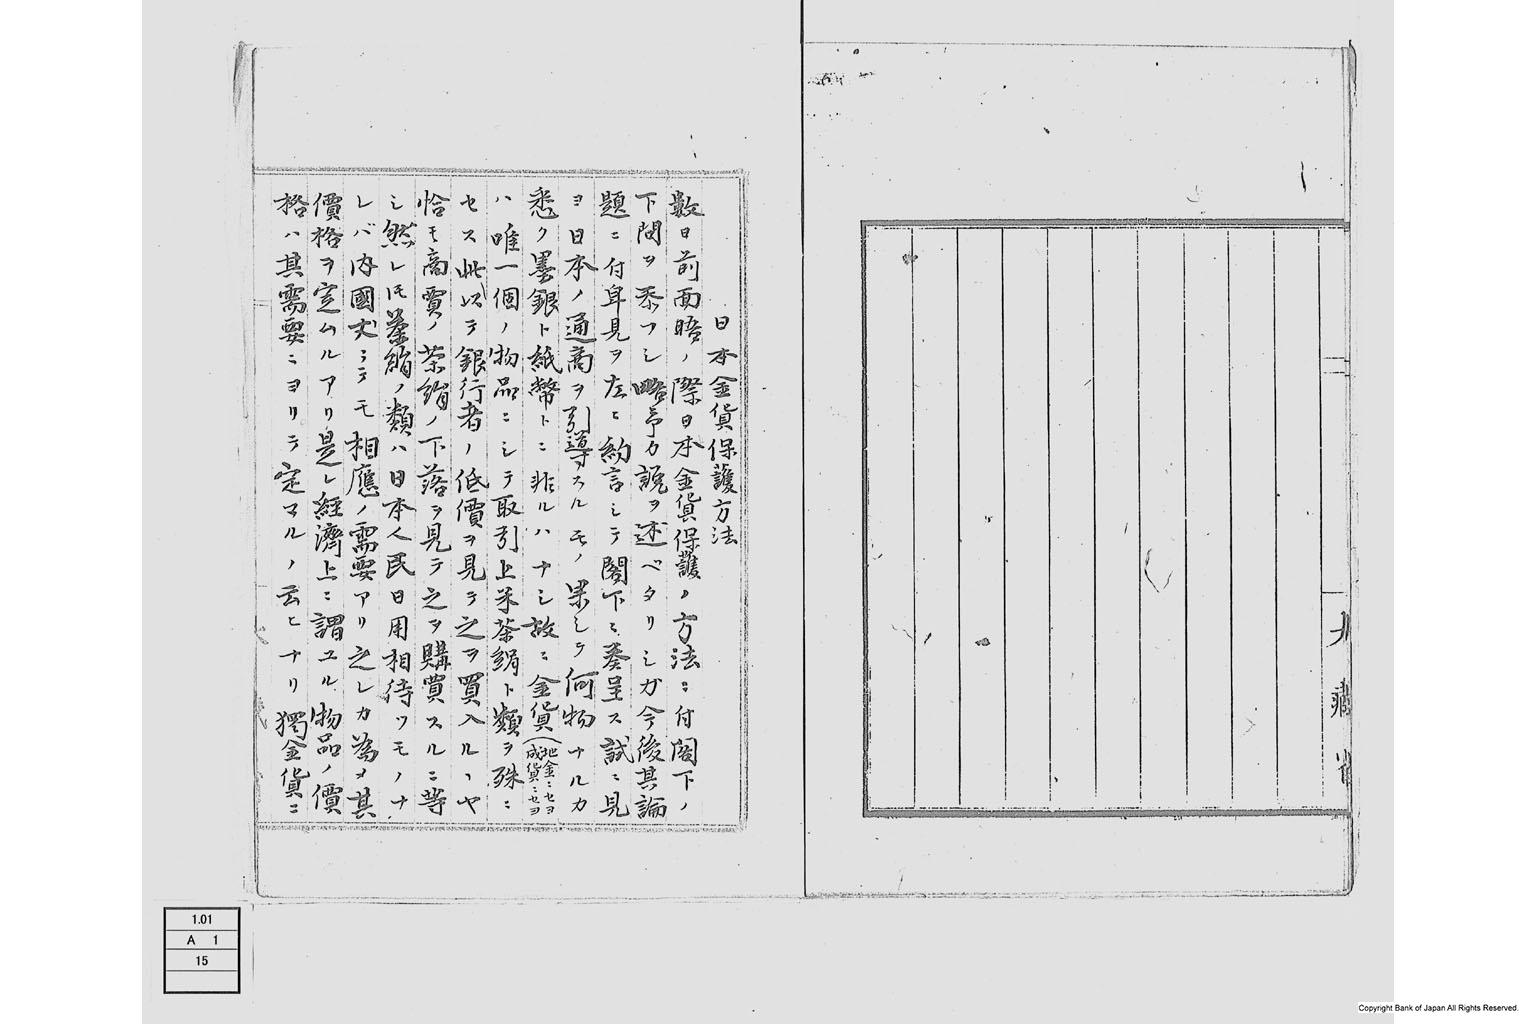 大藏省
日本金貨保護方法
數日前面晤ノ際日本金貨保護ノ方法ニ付閣下ノ
下問ヲ忝フシ略予カ説ヲ述ベタリシガ今後其論
題ニ付卑見ヲ左ニ約言シテ閣下ニ奏呈ス試ニ見
ヨ日本ノ通商ヲ引導スルモノ果シテ何物ナルカ
悉ク墨銀ト紙幣トニ非ルハナシ故ニ金貨(地金ニセヨ成貨ニセヨ
ハ唯一個ノ物品ニシテ取引上米茶絹ト類ヲ殊ニ
セス此以テ銀行者ノ低價ヲ見テ之ヲ買入ルヽヤ
恰モ高賈ノ茶絹ノ下落ヲ見テ之ヲ購買スルニ等
シ然レ𪜈茶絹ノ類ハ日本人民日用相待ツモノナ
レバ内國丈ニテモ相應ノ需要アリ之レカ為メ其
價格ヲ定ムルアリ是レ經濟上ニ謂ユル物品ノ價
格ハ其需要ニヨリテ定マルノ云ヒナリ獨金貨ニ
1.01
A 1
15
Copyright Bank of Japan All Rights Reserved.